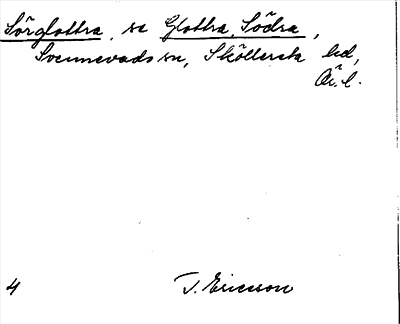 Sörglottra, se Glottra, Södra,
Svennevads sn, Sköllersta hd,
Ör. l.
4 T. Ericsson